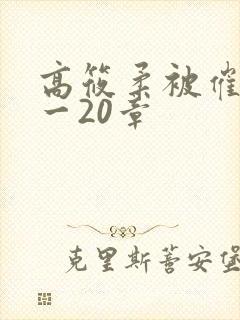 高筱柔被催
一20章
克里斯蒈安堡